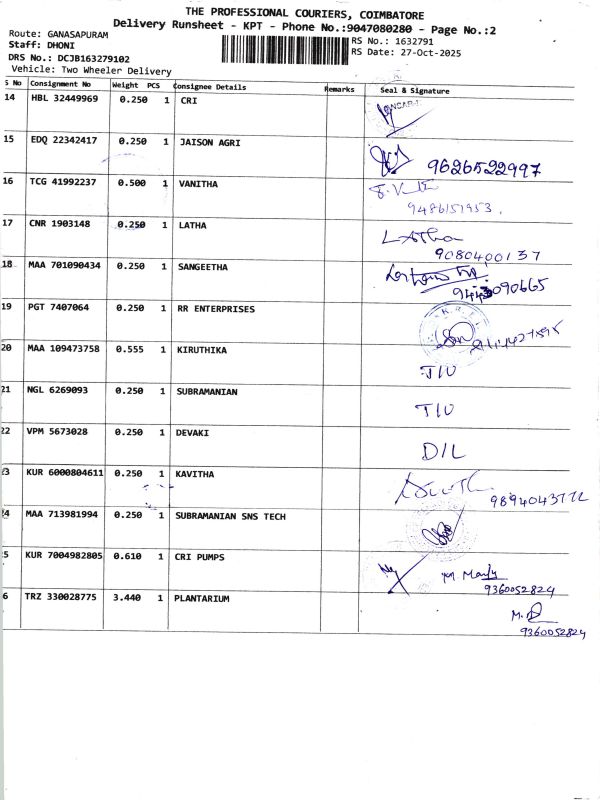 THE PROFESSIONAL COURIERS, COIMBATORE
Delivery Runsheet - KPT - Phone No.:9047080280 - Page No.:2
Route: GANASAPURAM
RS No.: 1632791
Staff: DHONI
RS Date: 27-Oct-2025
DRS No.: DCJB163279102
Vehicle: Two Wheeler Delivery
S No Consignment No Weight PCS Consignee Details Remarks Seal & Signature
14 HBL 32449969 0.250 1 CRI
15 EDQ 22342417 0.250 1 JAISON AGRI 9626522997
16 TCG 41992237 0.500 1 VANITHA
9486151953.
17 CNR 1903148 0.250 1 LATHA LATha
9080400137
18 MAA 701090434 0.250 1 SANGEETHA
19 PGT 7407064 0.250 1 RR ENTERPRISES
20 MAA 109473758 0.555 1 KIRUTHIKA
21 NGL 6269093 0.250 1 SUBRAMANIAN
22 VPM 5673028 0.250 1 DEVAKI D/L
23 KUR 6000804611 0.250 1 KAVITHA
24 MAA 713981994 0.250 1 SUBRAMANIAN SNS TECH
25 KUR 7004982805 0.610 1 CRI PUMPS
9360052824
26 TRZ 330028775 3.440 1 PLANTARIUM
9360052824